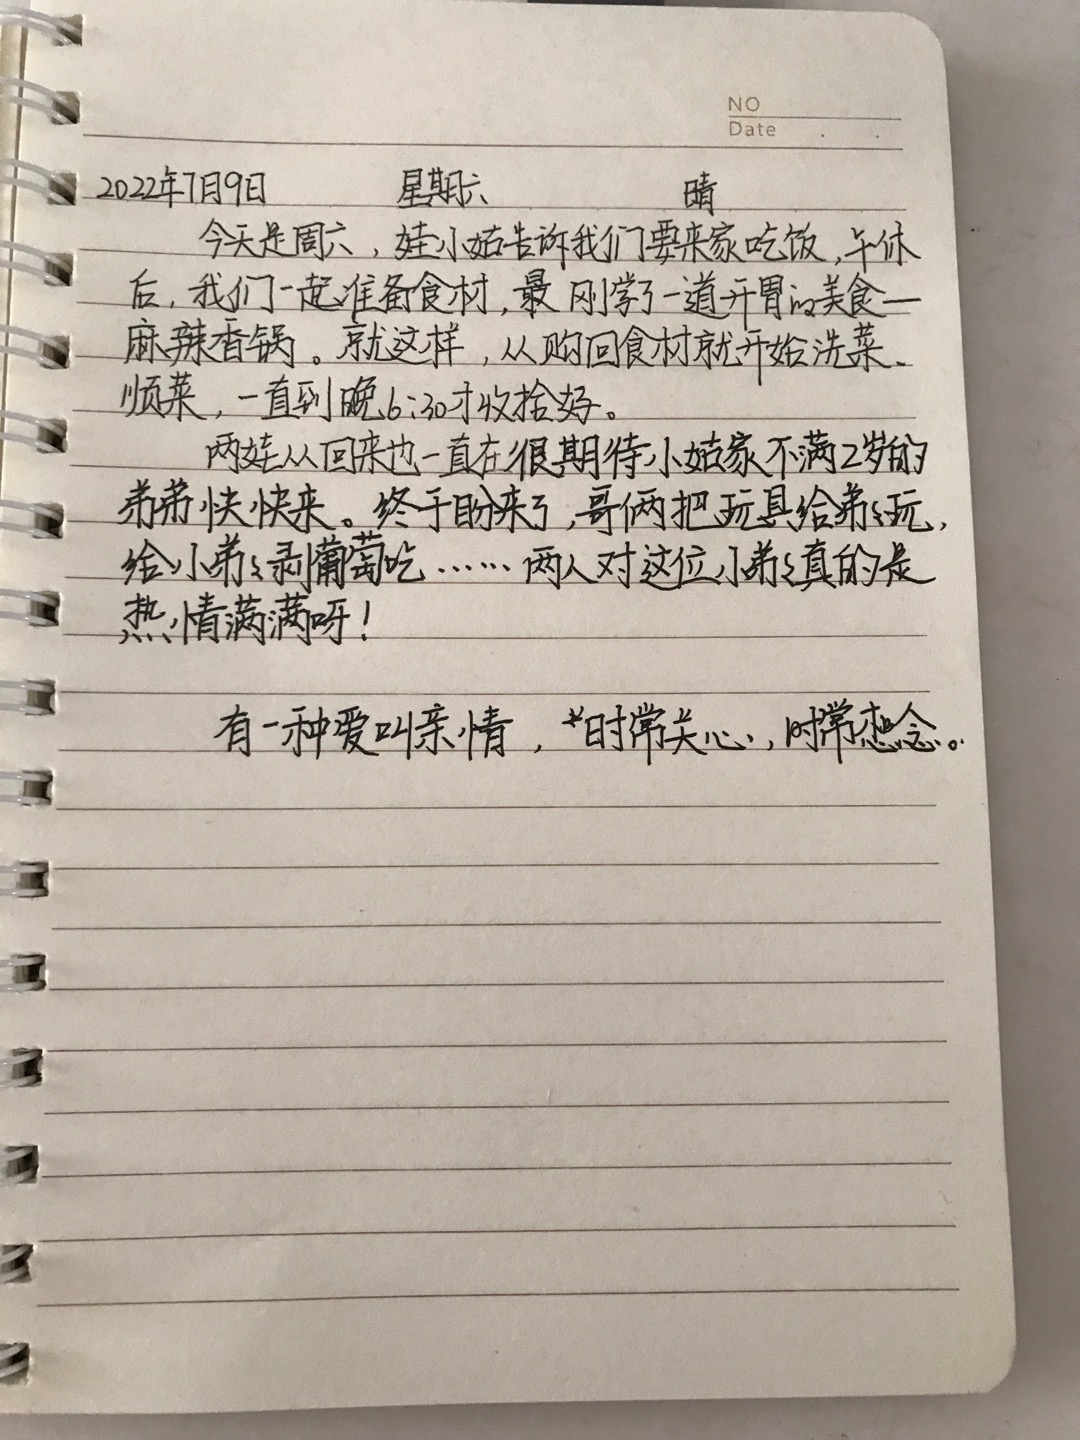 NO
Date . .
2022年7月9日 星期六 晴
今天是周六，娃小姑告诉我们要来家吃饭，午休
后，我们一起准备食材，最刚学了一道开胃的美食—
麻辣香锅。就这样，从购回食材就开始洗菜、
顺菜，一直到晚6:30才收拾好。
两娃从回来也一直在很期待小姑家不满2岁的
弟弟快快来。终于盼来了，哥俩把玩具给弟々玩，
给小弟々剥葡萄吃……两人对这位小弟々真的是
热情满满呀！
有一种爱叫亲情，时常关心，时常想念。